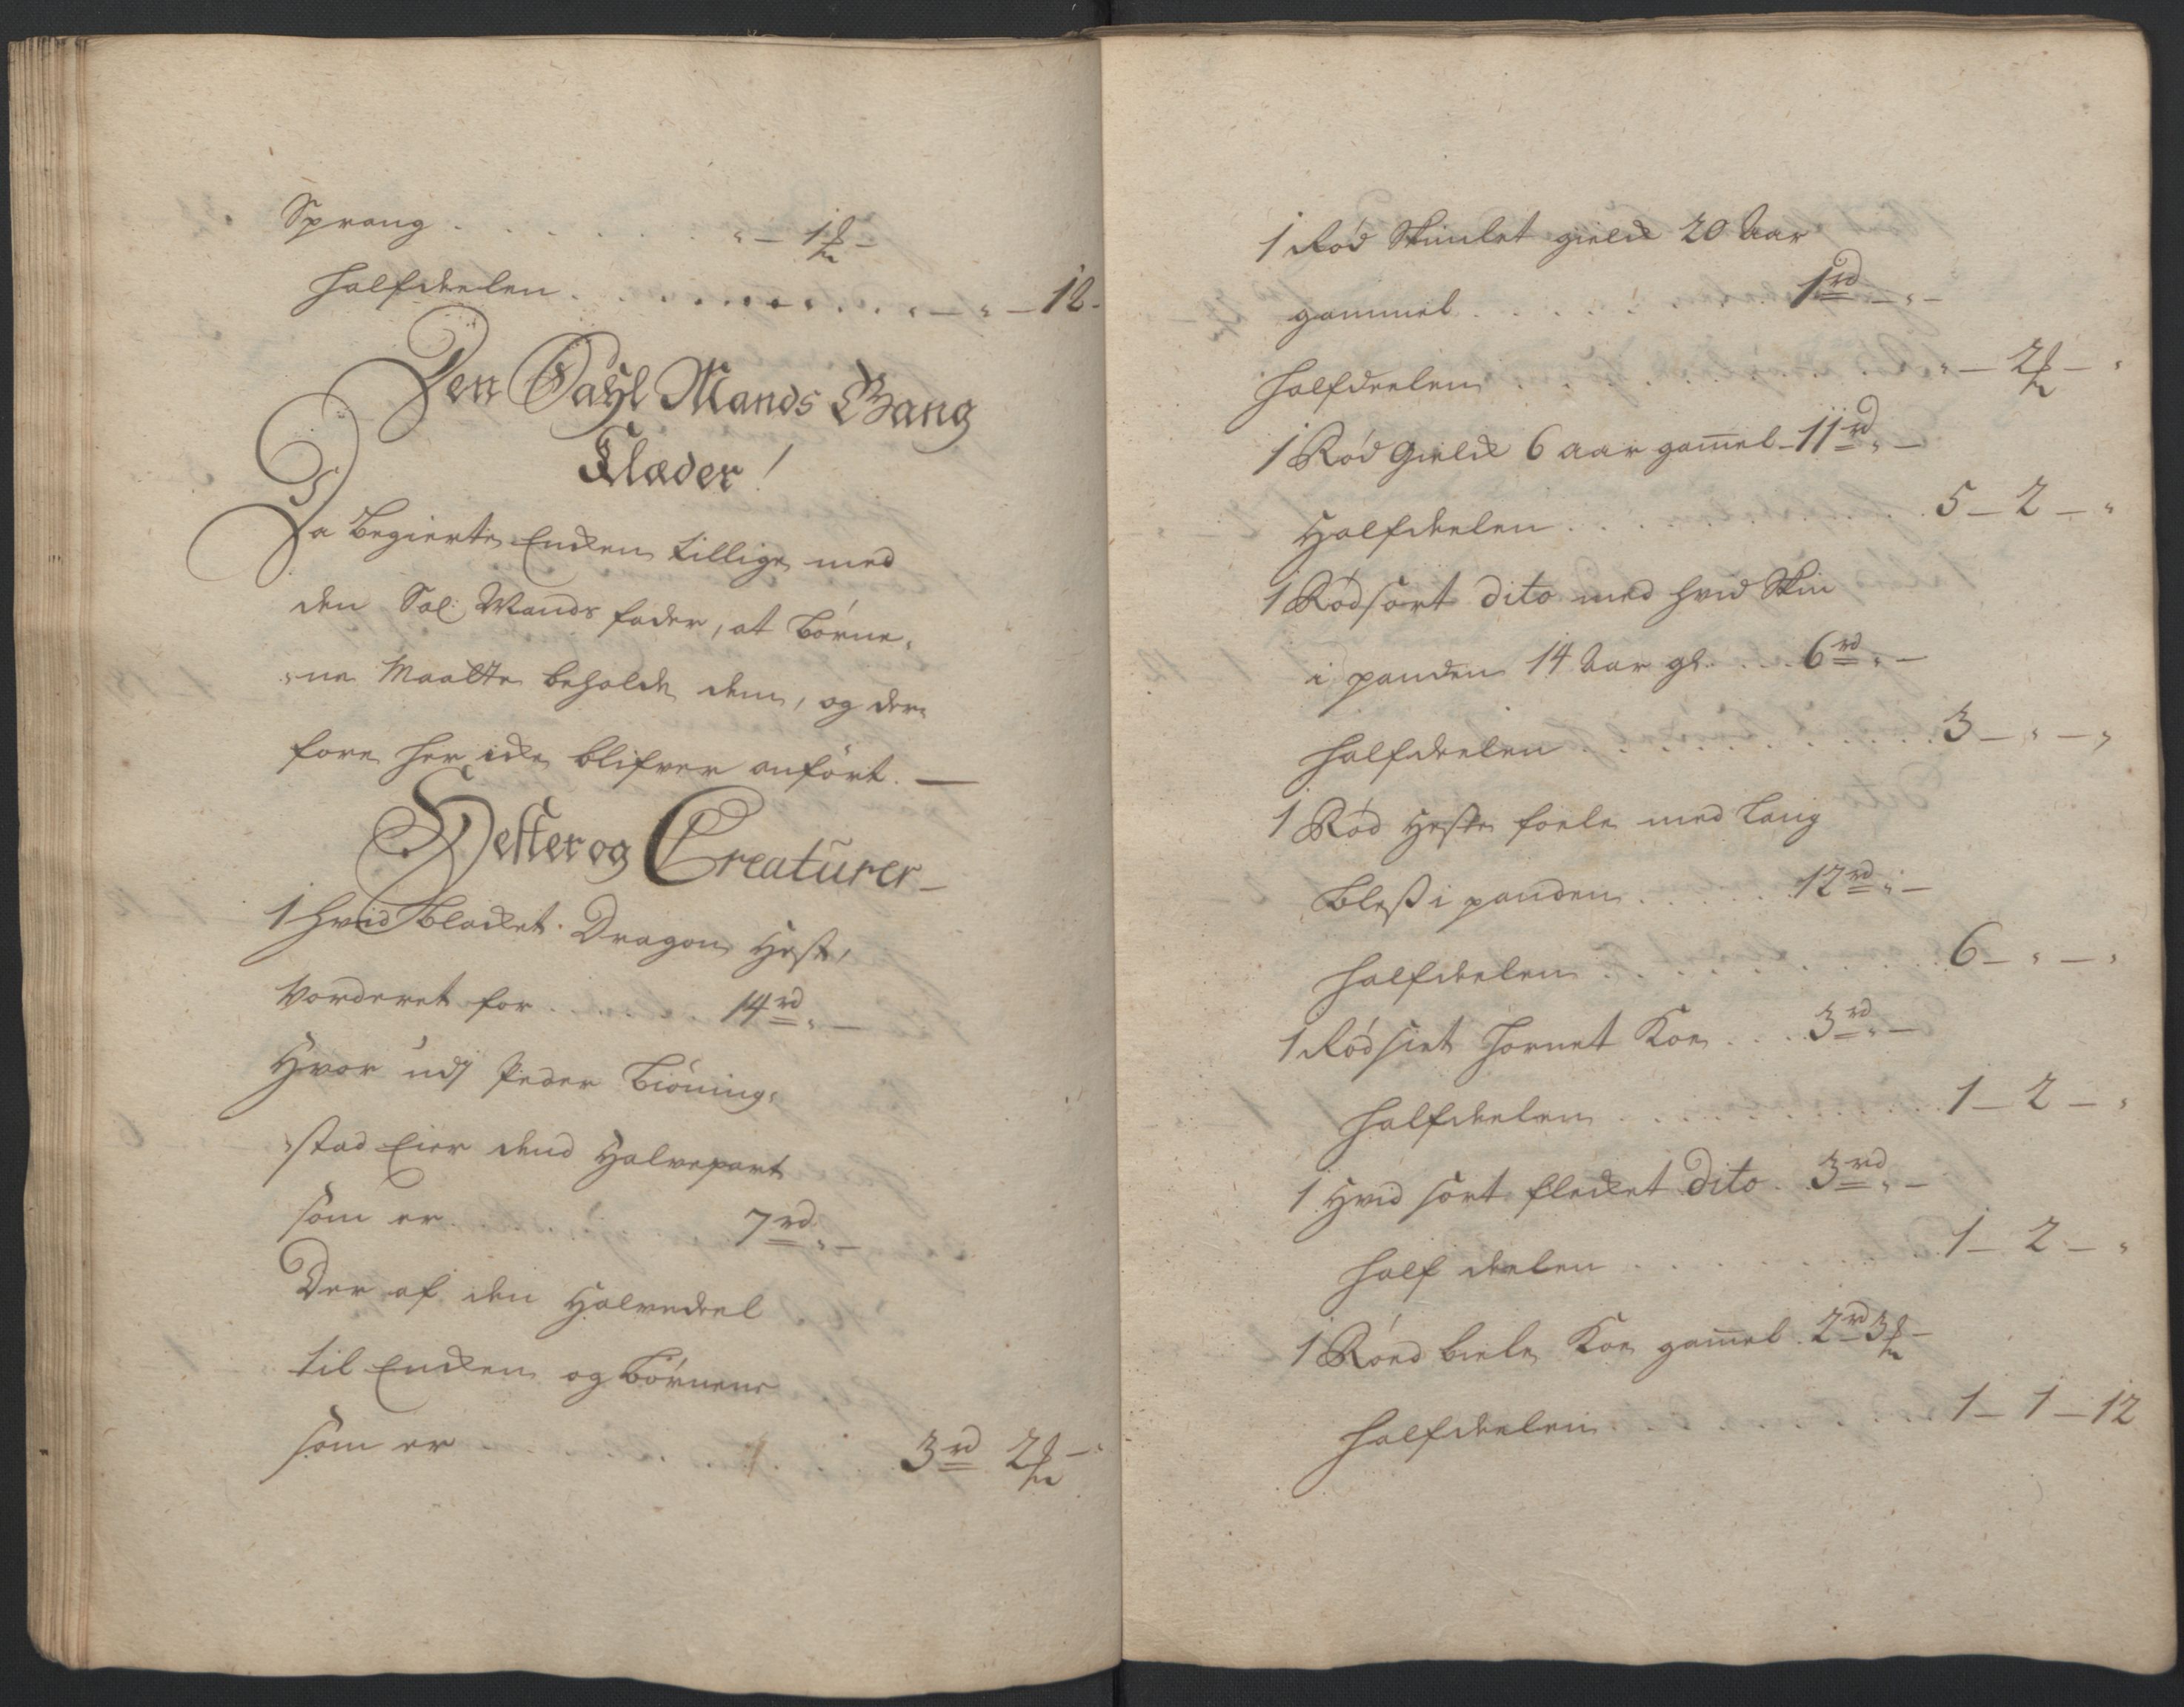 Sprang . . . . . . . „ – 1 ß –
halfdeelen . . . . . . . . . „ – „ – 12 -
Den Sahl Mands Gang
Klæder!
Da begierte Encken tillige med
den Sal: Mands fader, at börne„
„ne Maatte beholde dem, og der„
fore her icke blifver anfört. —
Hester og Creaturer –
1 hvid blacket Dragon Hest,
Vorderet for . . . . 14 rd „ –
Hvor udj Peder Biöning„
„stad Eier dend Halvepart
som er . . . . 7 rd „ –
Der af den Halvedeel
til Encken og börnene
som er . . . . . . . . 3 rd 2 ß – „
1 Rød Skimlet gield 20 Aar
gammel . . . . . . . 1 rd – „ –
halfdeelen . . . . . . . . . „ – 2 ß – „
1 Rød Gield 6 aar gam̅el – 11 rd „ –
Halfdeelen . . . . . . . . . 5 – 2 – „
1 Rødsort dito med hvid Skin
i panden 14 Aar gl. . . . 6 rd „ –
halfdeelen . . . . . . . . . 3 – „ – „
1 Rød Heste foele med Lang
bless i panden . . . . . 12 rd „ –
halfdeelen . . . . . . . . . 6 – „ – „
1 Rød siet hornet Koe . . . 3 rd „ –
halfdeelen . . . . . . . . . 1 – 2 – „
1 Hvid sort flecket dito . 3 rd „ –
half deelen . . . . . . . . . 1 – 2 – „
1 Röed biele Koe gam̅el . 2 rd 3 ß –
halfdeelen . . . . . . . . . 1 – 1 – 12